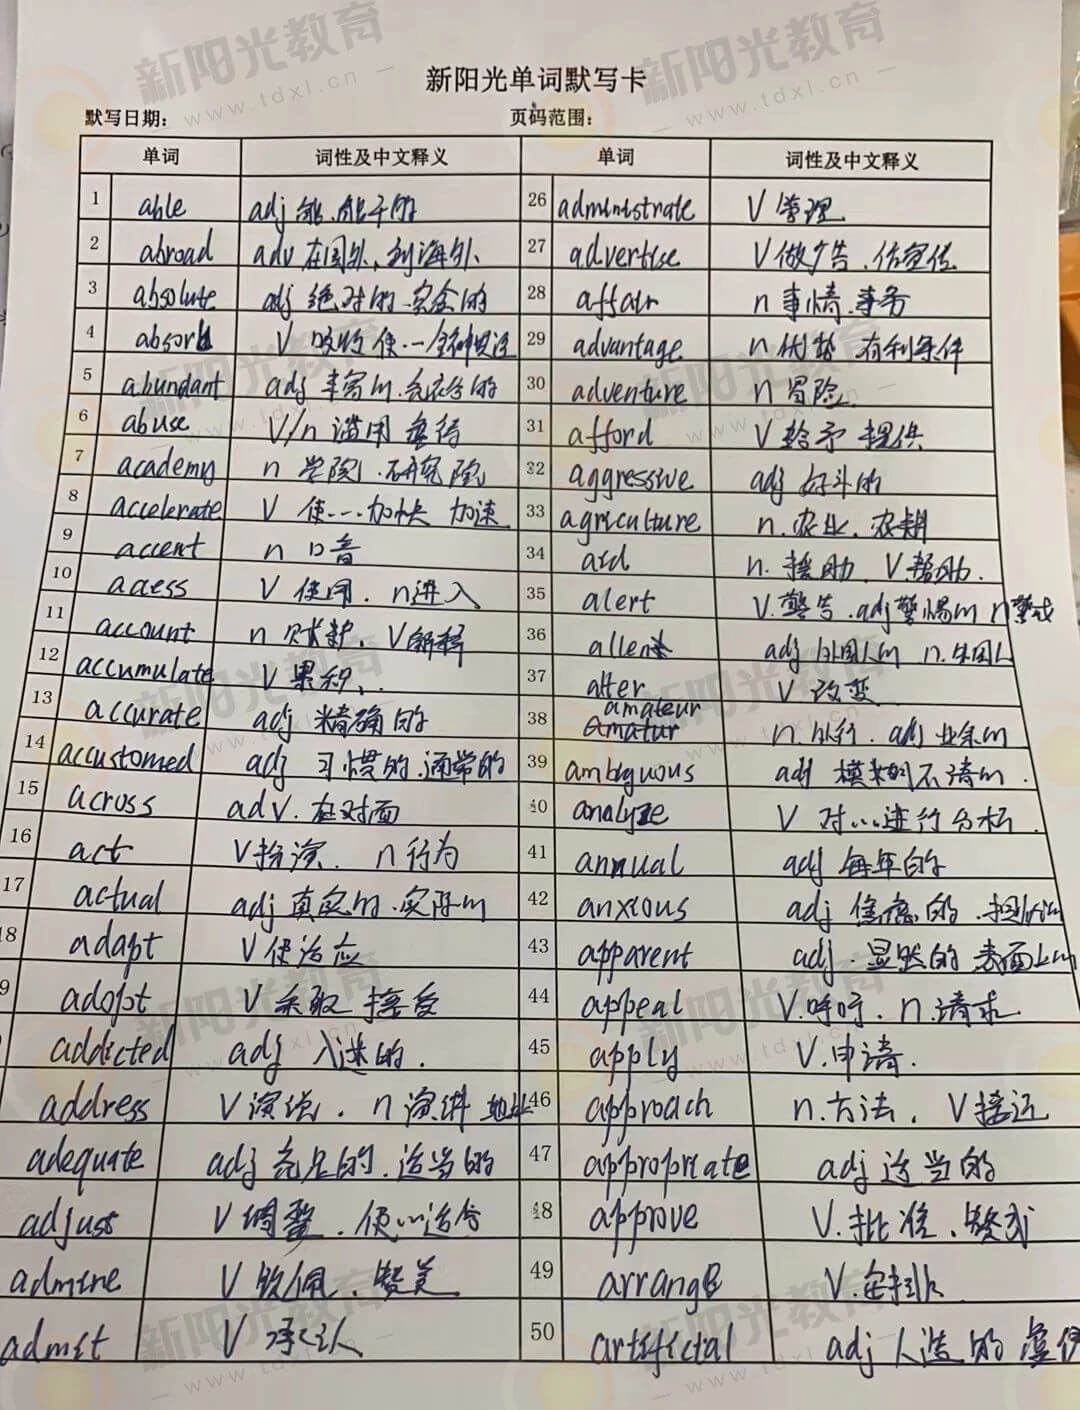 新阳光单词默写卡
默写日期: 页码范围:
单词 词性及中文释义 单词 词性及中文释义
1 able adj 能.能干的 26 administrate V 管理
2 abroad adv 在国外、到海外、 27 advertise V 做广告.作宣传
3 absolute adj 绝对的.完全的 28 affair n 事情.事务
4 absorb V 吸收 使… 29 advantage n 优势 有利条件
5 abundant adj 丰富的.充裕的 30 adventure n 冒险.
6 abuse V/n 滥用 虐待 31 afford V 给予 提供
7 academy n 学院.研究院 32 aggressive adj 好斗的
8 accelerate V 使…加快 加速 33 agriculture n.农业.农耕
9 accent n 口音 34 aid n.援助.V帮助.
10 access V 使用.n进入 35 alert V.警告.adj警惕的 n警戒
11 account n 账户.V解释 36 alien adj 外国人的 n.外国人
12 accumulate V 累积、. 37 alter V 改变
13 accurate adj 精确的 38 amateur n.外行.adj业余的
14 accustomed adj 习惯的.通常的 39 ambiguous adj 模糊的不清的.
15 across adv.在对面 40 analyze V 对…进行分析.
16 act V扮演. n行为 41 annual adj 每年的
17 actual adj真实的.实际的 42 anxious adj 焦虑的.担心的
18 adapt V使适应 43 apparent adj.显然的 表面上的
9 adopt V采取 接受 44 appeal V.呼吁.n.请求
addicted adj 入迷的. 45 apply V.申请.
address V演说.n演讲 地址 46 approach n.方法.V接近
adequate adj充足的.适当的 47 appropriate adj适当的
adjust V调整.使…适合 48 approve V.批准.赞成
admire V钦佩.赞美 49 arrange V.安排
admit V承认 50 artificial adj人造的 虚伪